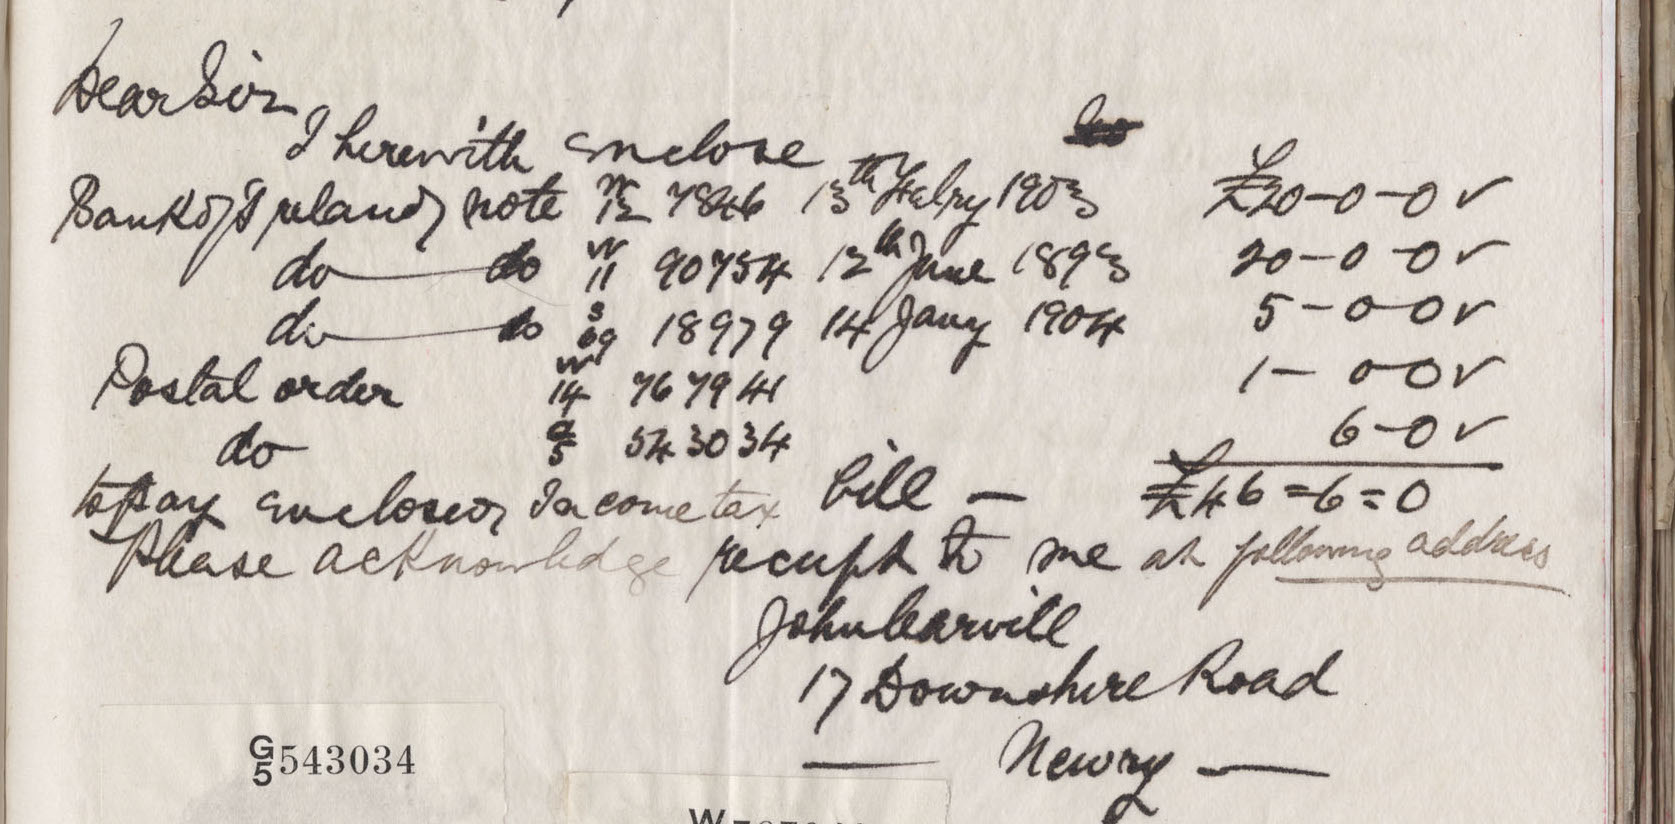 Dear Sir
I herewith enclose
Bank of Ireland note W/12 7846 13th Febry 1903 £20-0-0 ✓
do do W/11 90754 12th June 1893 20-0-0 ✓
do do S/69 18979 14 Jany 1904 5-0-0 ✓
Postal order W/14 767941 1-0 0 ✓
do G/5 543034 6-0 ✓
to pay enclosed Income tax bill — £46=6=0
Please acknowledge receipt to me at following address
John Carvill
17 Downshire Road
Newry
G/5 543034